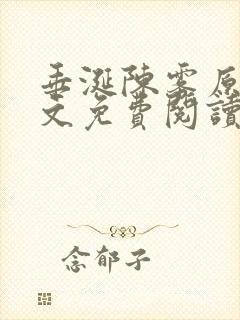 垂涎陳霁原
文免費閱讀
念郁子